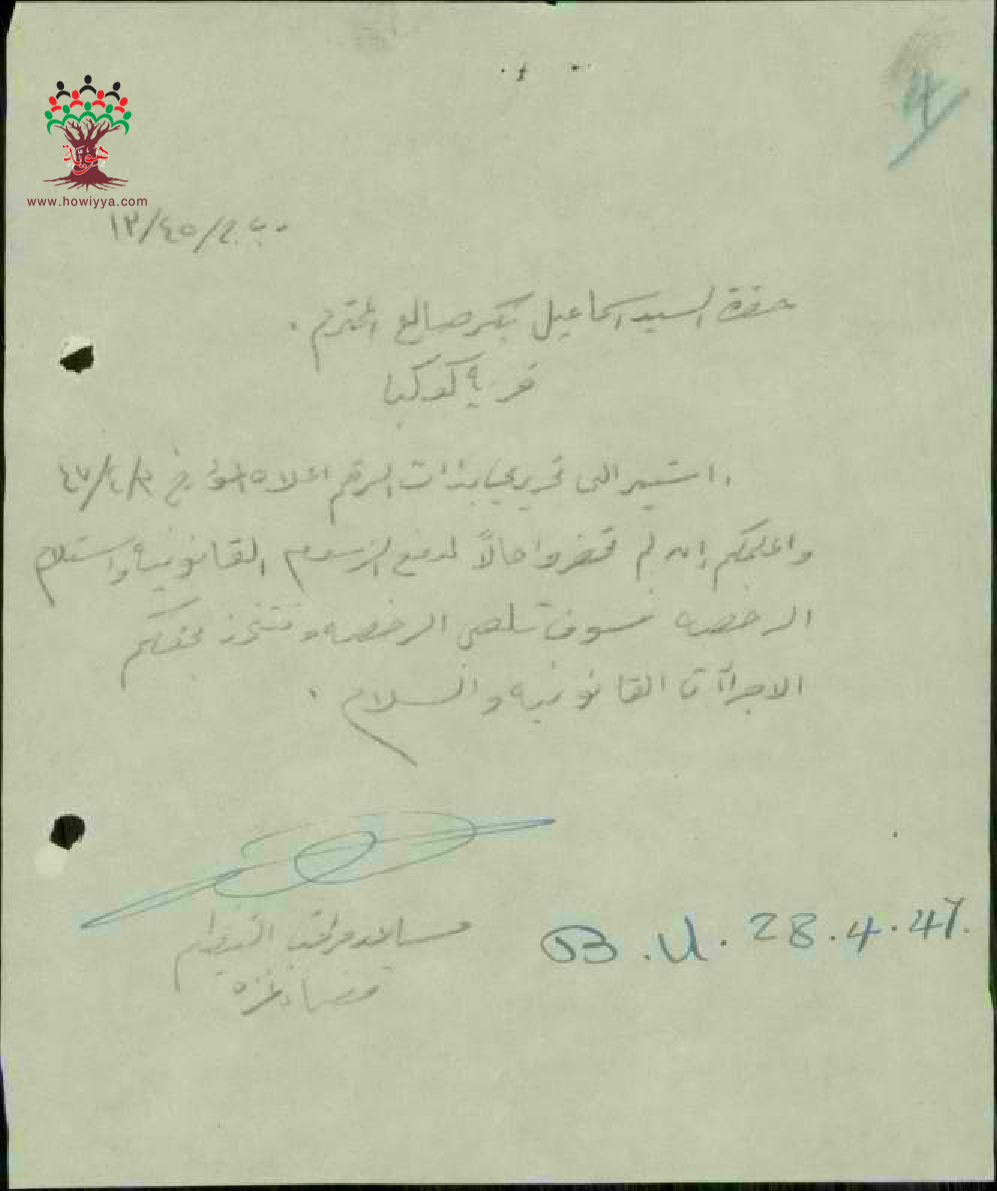 4
هوية
www.howiyya.com
١٣/٤٥/
حضرة السيد اسماعيل بكر صالح المحترم .
قرية كوكبا
. اشير الى تحريري بذات الرقم اعلاه المؤرخ
واعلمكم إن لم تحضروا حالاً لدفع الرسوم القانونيه واستلام
الرخصه فسوف تلغى الرخصه وتتخذ بحقكم
الاجراآت القانونيه والسلام .
مساعد مراقب
قضاء غزه
B.U. 28.4.47.